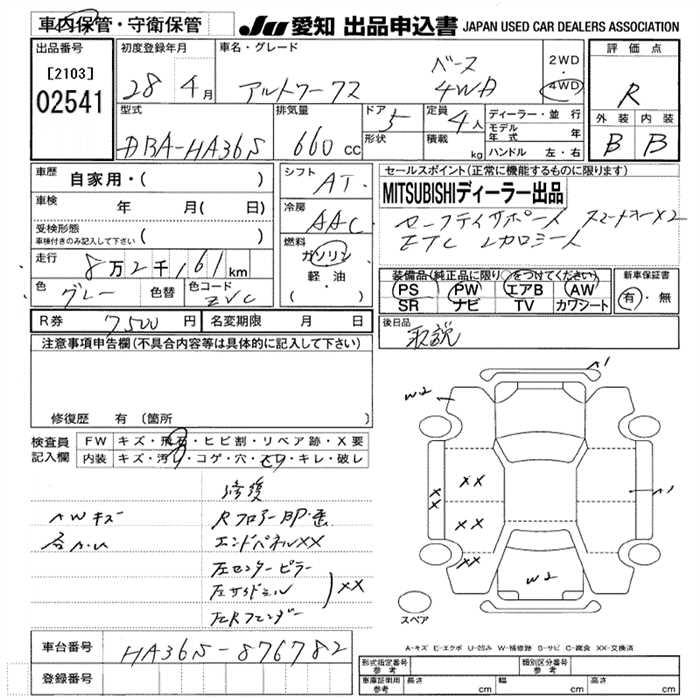 車内保管・守衛保管
JU 愛知 出品申込書 JAPAN USED CAR DEALERS ASSOCIATION
出品番号
[2103]
02541
初度登録年月
28年 4月
車名・グレード
アルトワークス
ベース
4WD
2WD
・
4WD
評価点
R
外装 内装
B B
型式
DBA-HA36S
排気量
660 cc
ドア 5
形状
定員 4人
積載 kg
ディーラー・並行
モデル年式 年
ハンドル 左・右
車歴
自家用・( )
車検
年 月( 日)
受検形態
車検付きのみ記入して下さい
( )
走行
8万2千161km
色 グレー 色替 色コード ZVC
シフト AT
冷房 AAC
燃料
ガソリン
軽・油
( )
R券 7,500円 名変期限 月 日
セールスポイント(正常に機能するものに限ります)
MITSUBISHIディーラー出品
セーフティサポート スマートキーX2
ETC レカロシート
装備品(純正品に限り○をつけてください)
PS PW エアB AW
SR ナビ TV カワシート
新車保証書
有・無
後日品
取説
注意事項申告欄(不具合内容等は具体的に記入して下さい)
修復歴 有〔箇所
検査員
記入欄
FW キズ・飛石・ヒビ割・リペア跡・X要
内装 キズ・汚レ・コゲ・穴・スリ・キレ・破レ
修復
AWキズ
Rフロアー BP・歪
エンドパネルXX
左センターピラー
左サイドシル
XX
左Rフェンダー
W2
A1
XX
XX
XX
A1
W2
スペア
A-キズ E-エクボ U-凹み W-補修跡 B-サビ C-腐食 XX-交換済
車台番号 HA36S-876782
登録番号
形式指定番号
参考
類別区分番号
参考
車庫証明用
参考
長さ cm 幅 cm 高さ cm